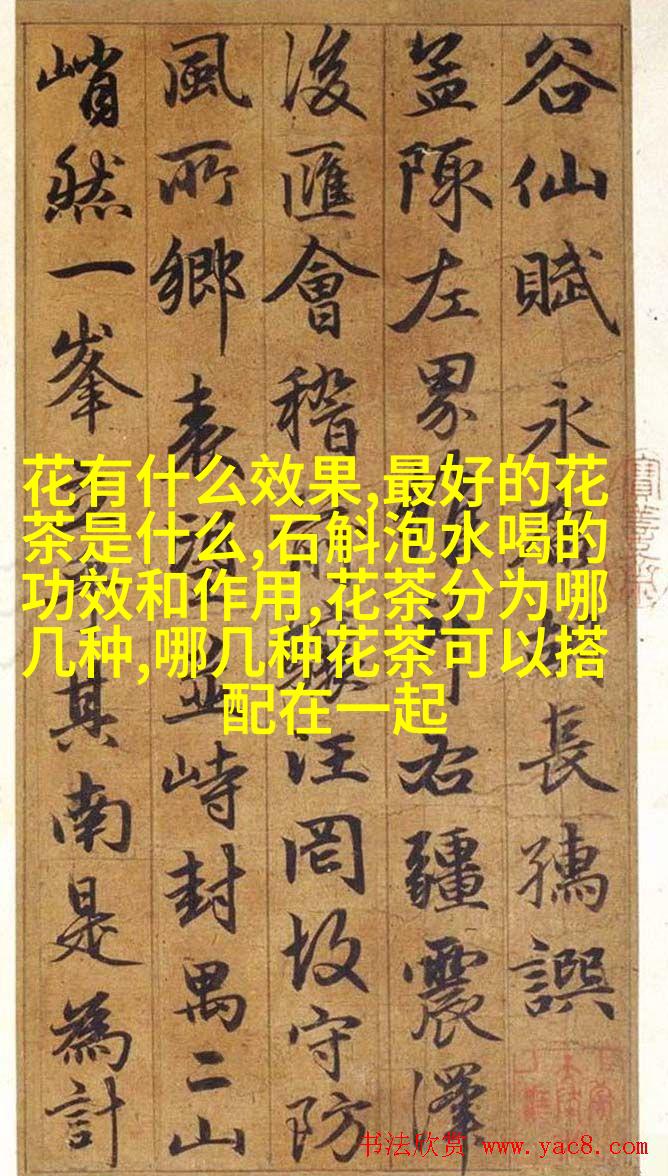 谷仙賦 永長孺譔
盖陬左界右疆震澤
浚匯會稽汪罔故守防
風所鄉表並峙封禺二山
峭然一峯其南是為計
花有什么效果,最好的花
茶是什么,石斛泡水喝的
功效和作用,花茶分为哪
几种,哪几种花茶可以搭
配在一起
书法欣赏 www.yac8.com